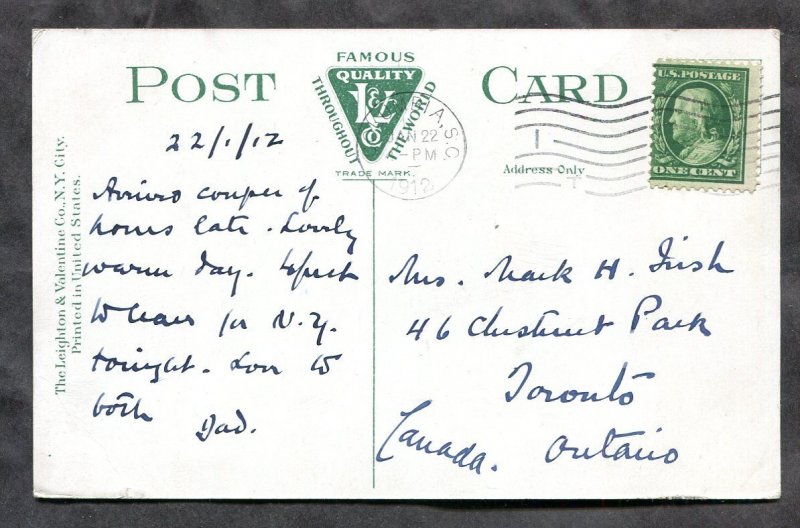 FAMOUS
POST CARD
QUALITY
THROUGHOUT THE WORLD
L&V
Co
TRADE MARK.
A, S.C.
JAN 22
-PM
1912
U.S. POSTAGE
ONE CENT
Address Only
The Leighton & Valentine Co., N.Y. City.
Printed in United States.
22/1/12
couper of
hours late. Lovely
warm day. Expect
to leave for N.Y.
tonight. Love to
both
Dad.
Mrs. Mark H. Irish
46 Chestnut Park
Toronto
Canada. Ontario